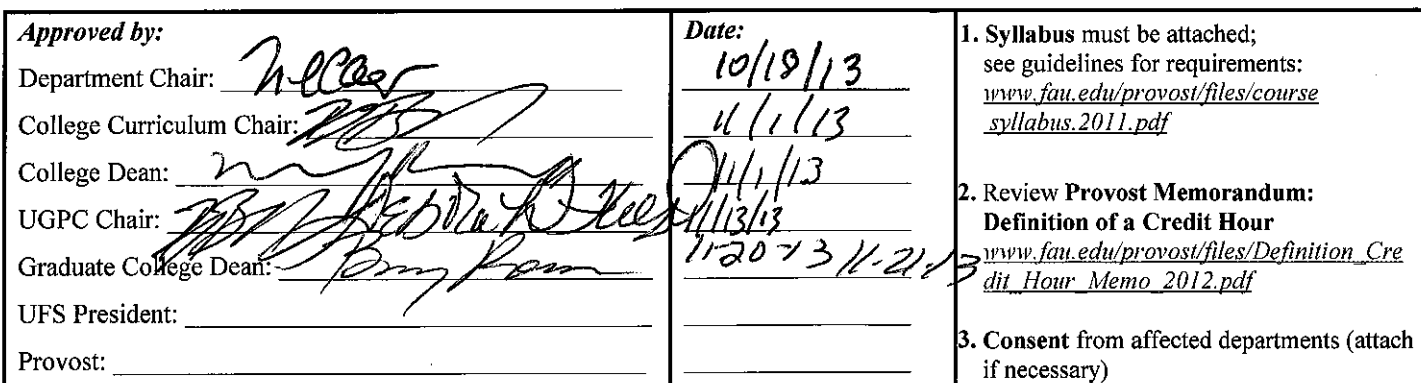 Approved by:
Date:
Department Chair:
10/18/13
College Curriculum Chair:
11/1/13
College Dean:
11/1/13
UGPC Chair:
11/13/13
Graduate College Dean:
11-20-13 11-21-13
UFS President:
Provost:
1. Syllabus must be attached;
see guidelines for requirements:
www.fau.edu/provost/files/course
syllabus.2011.pdf
2. Review Provost Memorandum:
Definition of a Credit Hour
www.fau.edu/provost/files/Definition_Cre
dit_Hour_Memo_2012.pdf
3. Consent from affected departments (attach
if necessary)